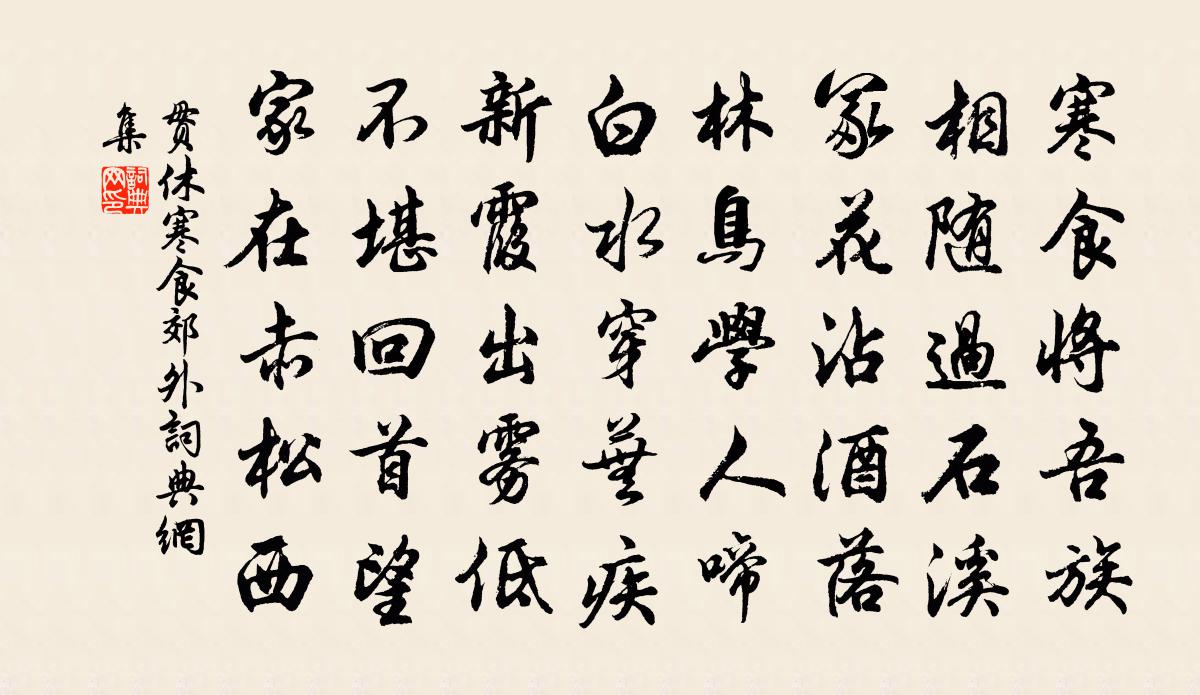 寒食將吾族
相随過石溪
冢花沾酒落
林鳥學人啼
白水穿蕪疾
新霞出雾低
不堪回首望
家在赤松西
貫休寒食郊外詞典網
集
詞典
网印